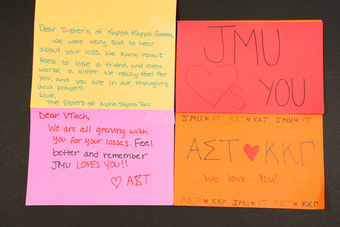 Dear Sister's of Kappa Kappa Gamma,
We were very sad to hear
about your loss. We know how it
feels to lose a friend, and even
worse a sister. We really feel for
you, and you are in our thoughts
and prayers.
Love,
The Sisters of Alpha Sigma Tau
JMU
♡ YOU
Dear VTech,
We are all grieving with
you for your losses. Feel
better and remember
JMU LOVES YOU!!
♡ ΑΣΤ
JMU ♥ VT ΑΣΤ ♥ ΚΚΓ JMU ♥ VT
ΑΣΤ ♥ ΚΚΓ
We love You!
ΑΣΤ ♥ ΚΚΓ JMU ♥ VT ΑΣΤ ♥ ΚΚΓ